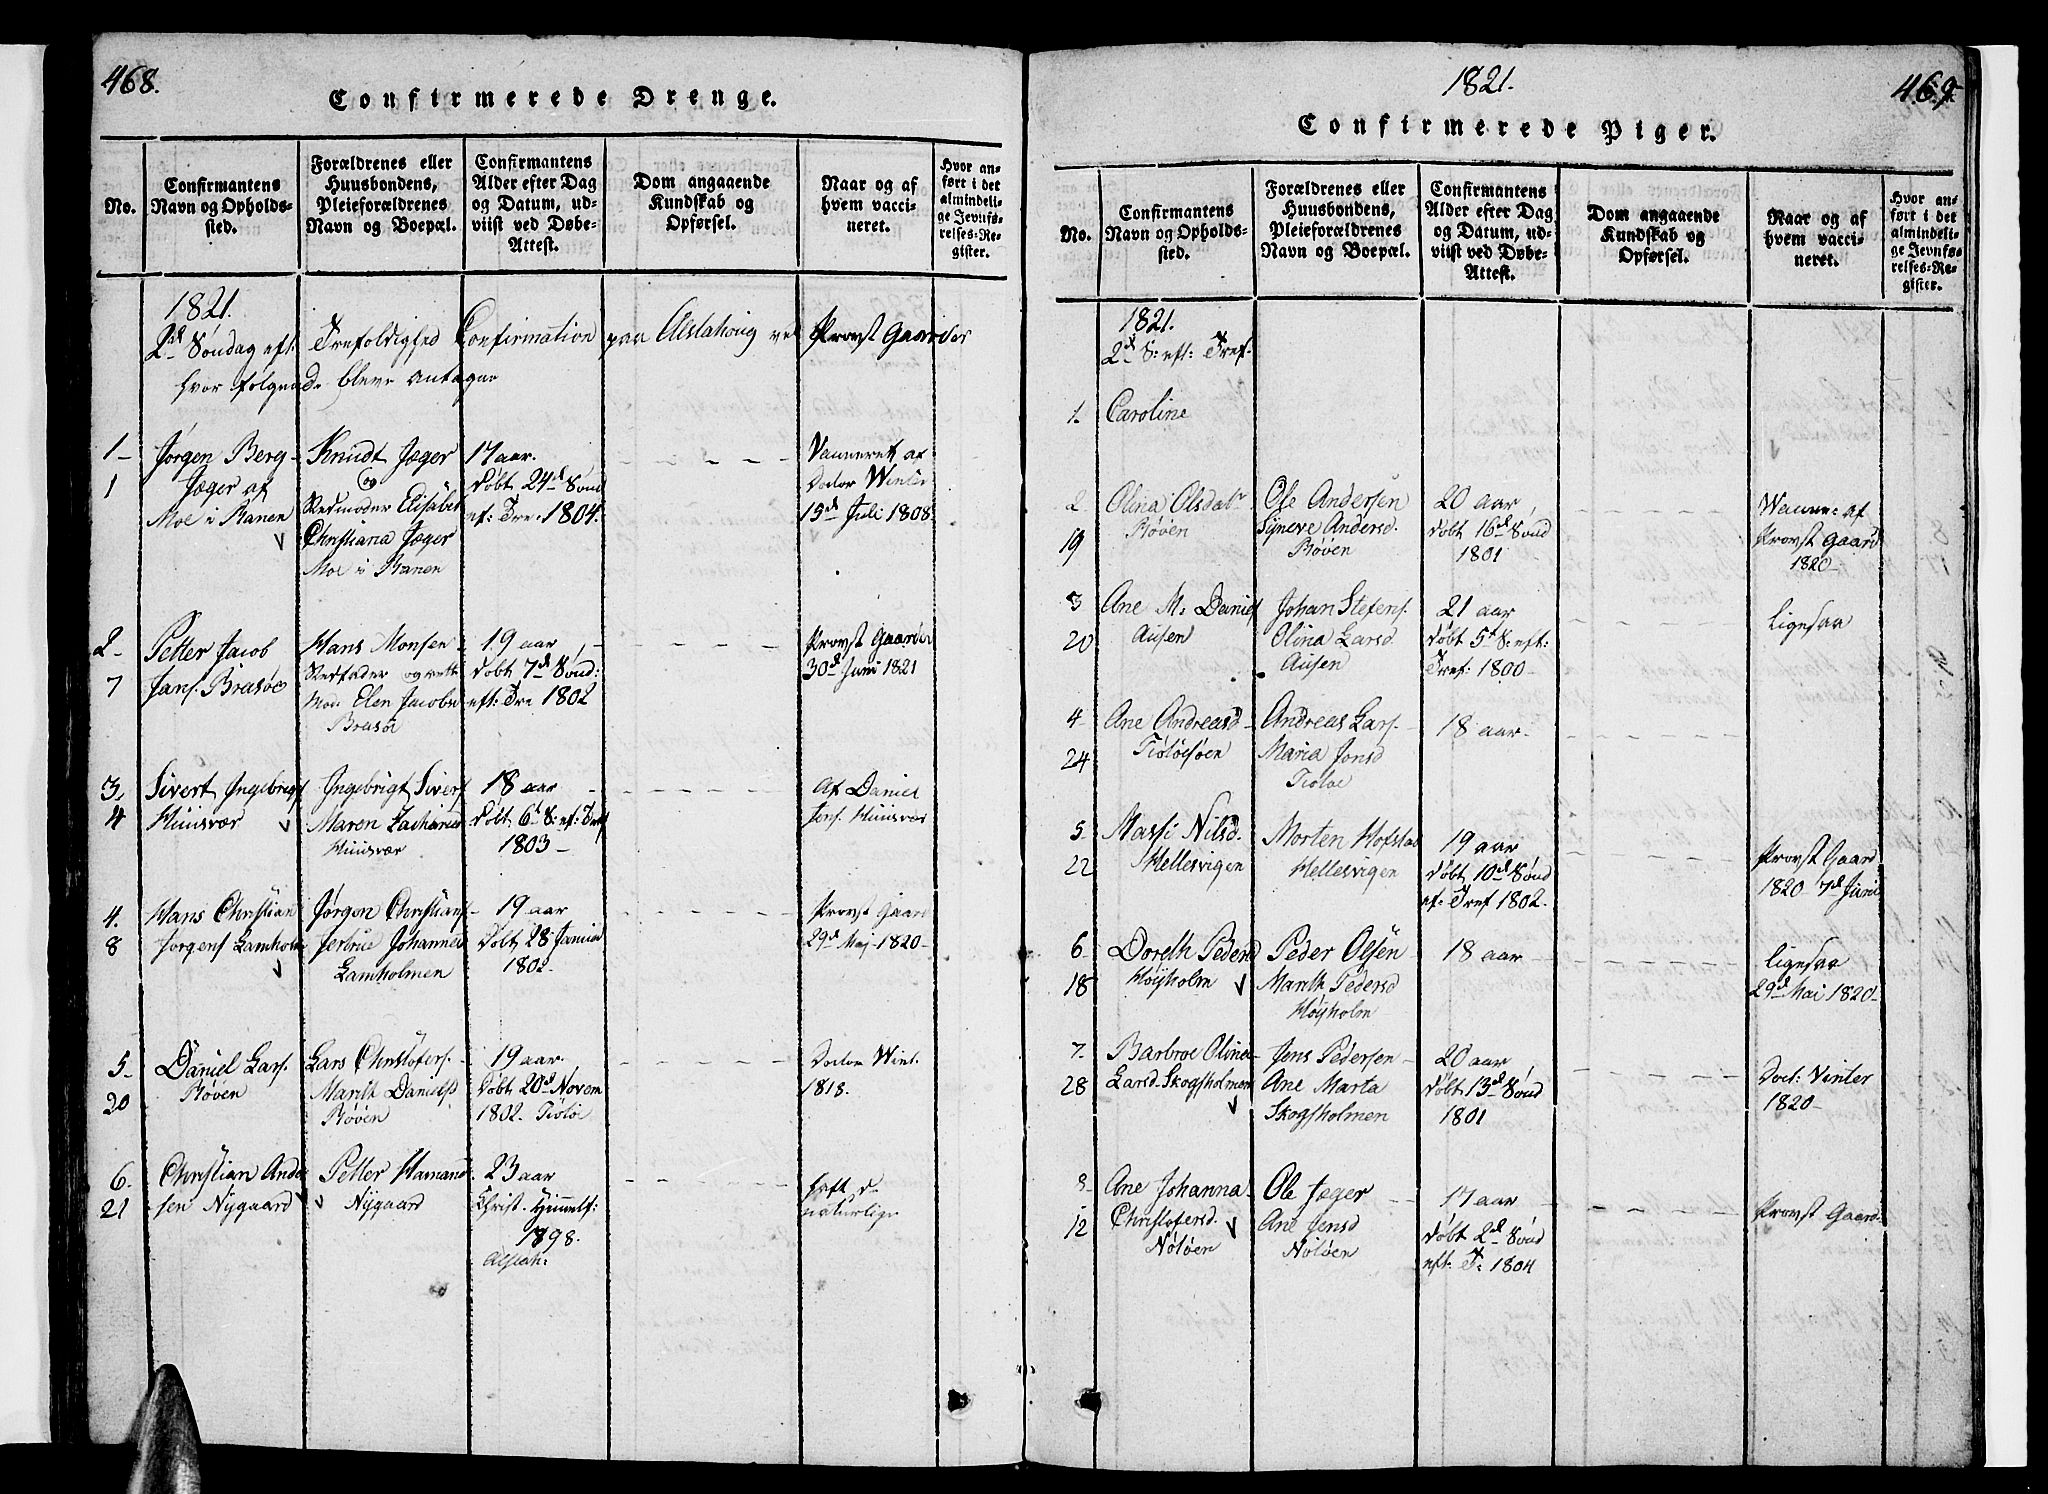 468.
Confirmerede Drenge.
No.
Confirmantens
Navn og Opholds-
sted.
Forældrenes eller
Huusbondens,
Pleieforældrenes
Navn og Boepæl.
Confirmantens
Alder efter Dag
og Datum, ud-
viist ved Døbe-
Attest.
Dom angaaende
Kundskab og
Opførsel.
Naar og af
hvem vacci-
neret.
Hvor an-
ført i det
almindeli-
ge Jevnfø-
relses-Re-
gister.
1821.
2d Søndag eft: Trefoldighed Confirmation paa Alstahoug ved Provst Gaarder
hvor følgende bleve antagne
1-
1
Jørgen Berg
Jæger af
Moe i Ranen
Knudt Jæger
og
Stedmoder Elisabet
Christiana Jæger
Moe i Ranen
17 aar.
Døbt 24d Sönd
ef: Tre. 1804.
Vaccineret af
Doctor Winter
15d Juli 1808.
2-
7
Petter Jacob
Jans. Brasöe
Hans Monsen
Stedfader og rette
Mod: Elen Jacobs
Brasöe
19 aar
Døbt 7d Sönd:
eft: Tre 1802
Provst Gaarder
30d Juni 1821
3,
4
Sivert Ingebrigts
Huusvær
Ingebrigt Sivers
Maren Zacharias
Huusvær
18 aar
Døbt 6d S: ef: Tref
1803-
Af Daniel
Jons. Huusvær
4.
8
Hans Christian
Jörgens Lamholm
Jørgen Christians
Jertrue Johannes
Lamholmen
19 aar
Døbt 28 Januar
1802.
Provst Gaard
29d Maj 1820-
5-
20
Daniel Lars.
Röven
Lars Christofers.
Marith Danielsd
Röven
19 aar.
Døbt 20d Novem
1802. Tiötöe
Doctor Wint.
1818.
6.
21
Christian Ander
sen Nygaard
Petter Hamand
Nygaard
23 aar
Christ. Himmelf:
1798.
Alstah:
haft d
naturlige
1821.
469
Confirmerede Piger.
No.
Confirmantens
Navn og Opholds-
sted.
Forældrenes eller
Huusbondens,
Pleieforældrenes
Navn og Boepæl.
Confirmantens
Alder efter Dag
og Datum, ud-
viist ved Døbe-
Attest.
Dom angaaende
Kundskab og
Opførsel.
Naar og af
hvem vacci-
neret.
Hvor an-
ført i det
almindeli-
ge Jevnfø-
relses-Re-
gister.
1821.
2d S: eft: Tref.
1.
Caroline
2
19
Olina Olsdatr
Röven
Ole Andersen
Syneve Andersd.
Röven
20 aar
Døbt 16d Sönd
1801
Vaccine: af
Provst Gaard
1820-
3
20
Ane M: Daniels
Ausen
Johan Stefens.
Olina Larsd
Ausen
21 aar
Døbt 5t S: eft:
Tref: 1800-
ligesaa
4
24
Ane Andreasd
Tiötöesöen
Andreas Lars.
Maria Jonsd
Tiötöe
18 aar-
5.
22
Massi Nilsd.
Hellesvigen
Morten Hofstad
Hellesvigen
19 aar
Døbt 10d Sönd
ef: Tref 1802.
Provst Gaard
1820 7d Juni
6
18
Doreth Pedersd
Høyholm
Peder Olsen
Marith Pedersd
Høyholm
18 aar
ligesaa
29d Mai 1820-
7.
28
Barbroe Olina
Larsd. Skogsholmen
Jens Pedersen
Ane Marta
Skogsholmen
20 aar
Døbt 13d Sönd
1801
Doct: Vinter
1820-
8
12
Ane Johanna
Christofersd.
Nötöen
Ole Jæger
Ane Jensd
Nötöen
17 aar
Døbt 2d Sönd
eft: T: 1804
Provst Gaard.